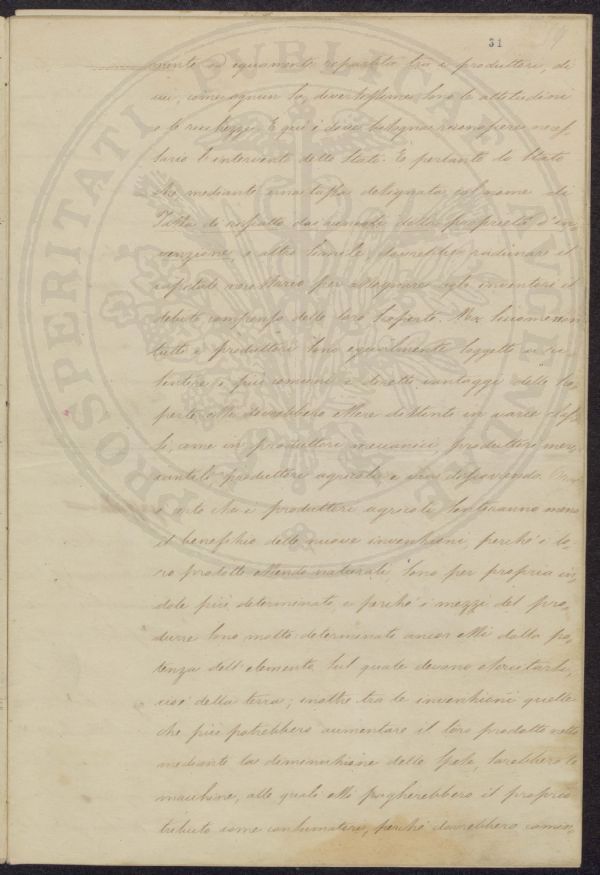 31
59
mente ed equamente repartito tra i produttori, di
cui, come ognun sa, diversissime sono le attitudini
e le ricchezze. E qui è dove bisogna riconoscere neces
sario l'intervento dello Stato. È pertanto lo Stato
che mediante una tassa designata col nome di
Tassa di riscatto dai vincoli della proprietà d'in,
venzione, o altro simile, dovrebbe radunare il
capitale necessario per assegnare agli inventori il
debito compenso delle loro scoperte. Ma siccome non
tutti i produttori sono egualmente soggetti a ri
sentire i più comuni e diretti vantaggi delle sco
perte essi dovrebbero essere distinti in varie clas,
si, come in produttori meccanici, produttori mer,
cantili, produttori agricoli, e via discorrendo. Ora
è certo che i produttori agricoli sentiranno meno
il beneficio delle nuove invenzioni, perché i lo,
ro prodotti essendo naturali sono per propria in,
dole più determinati, e perché i mezzi del pro,
durre sono molto determinati ancor essi dalla po,
tenza dell'elemento sul quale devono esercitarsi,
cioè della terra; inoltre tra le invenzioni quelle
che più potrebbero aumentare il loro prodotto netto
mediante la diminuzione delle spese, sarebbero le
macchine, alle quali essi pagherebbero il proprio
tributo come consumatori, perché dovrebbero comin,
PROSPERITATI PVBLICAE AVGENDAE